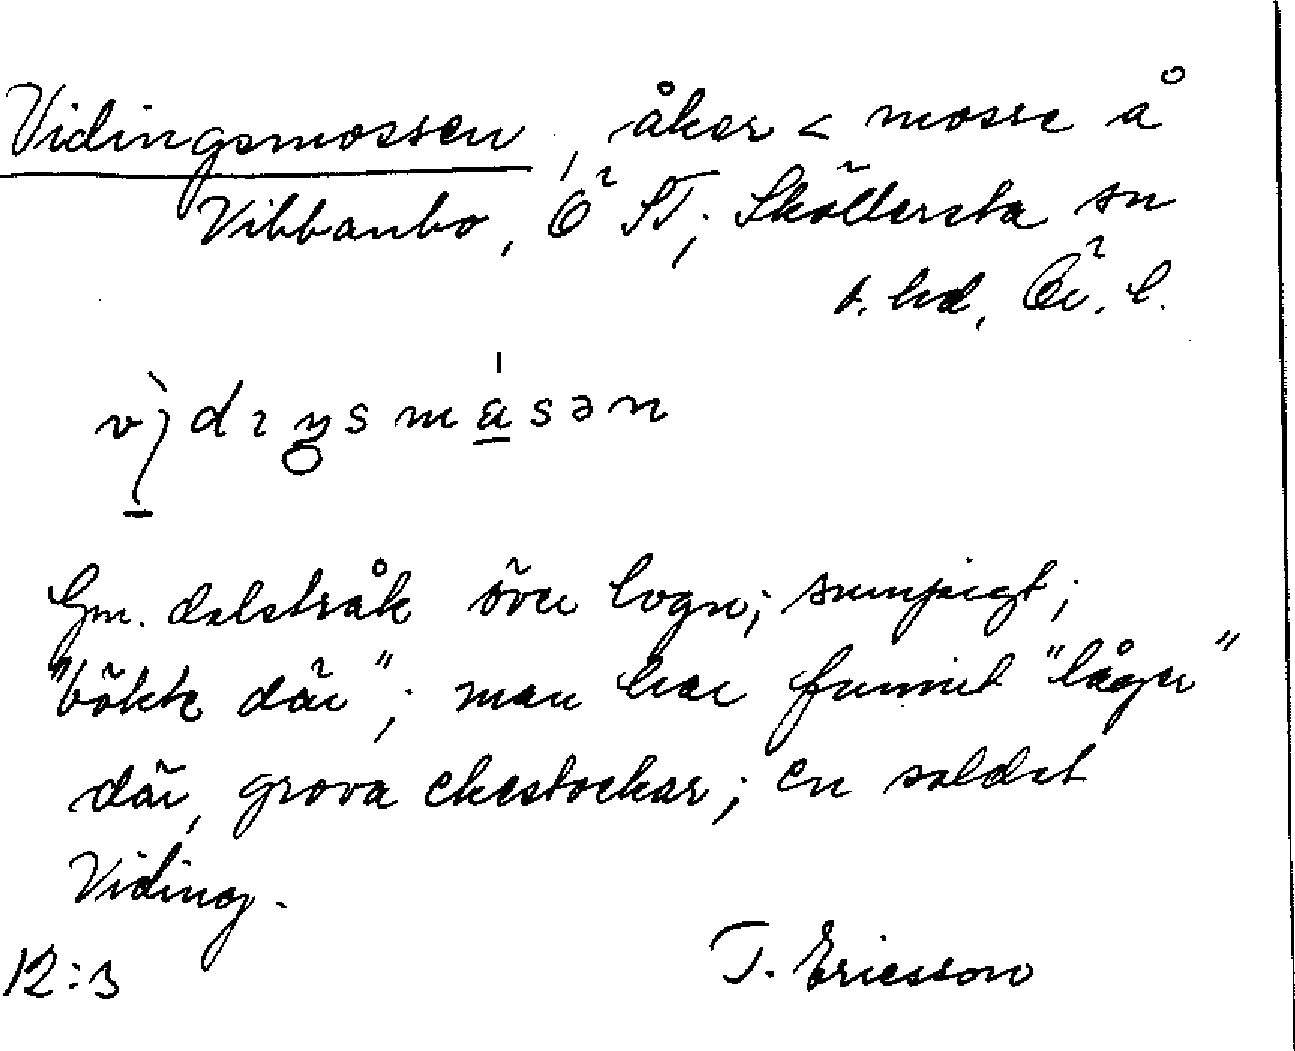 Vidingsmossen, åker < mosse å
Vibbanbo, Ö ST; Sköllersta sn
s. hd, Ör. l.
vìdıŋsmásən
Gm. dalstråk över logn; sumpigt;
"bökk där"; man har funnit "låger"
där, grova ekestockar; en soldat
Viding.
12:3 T. Ericsson